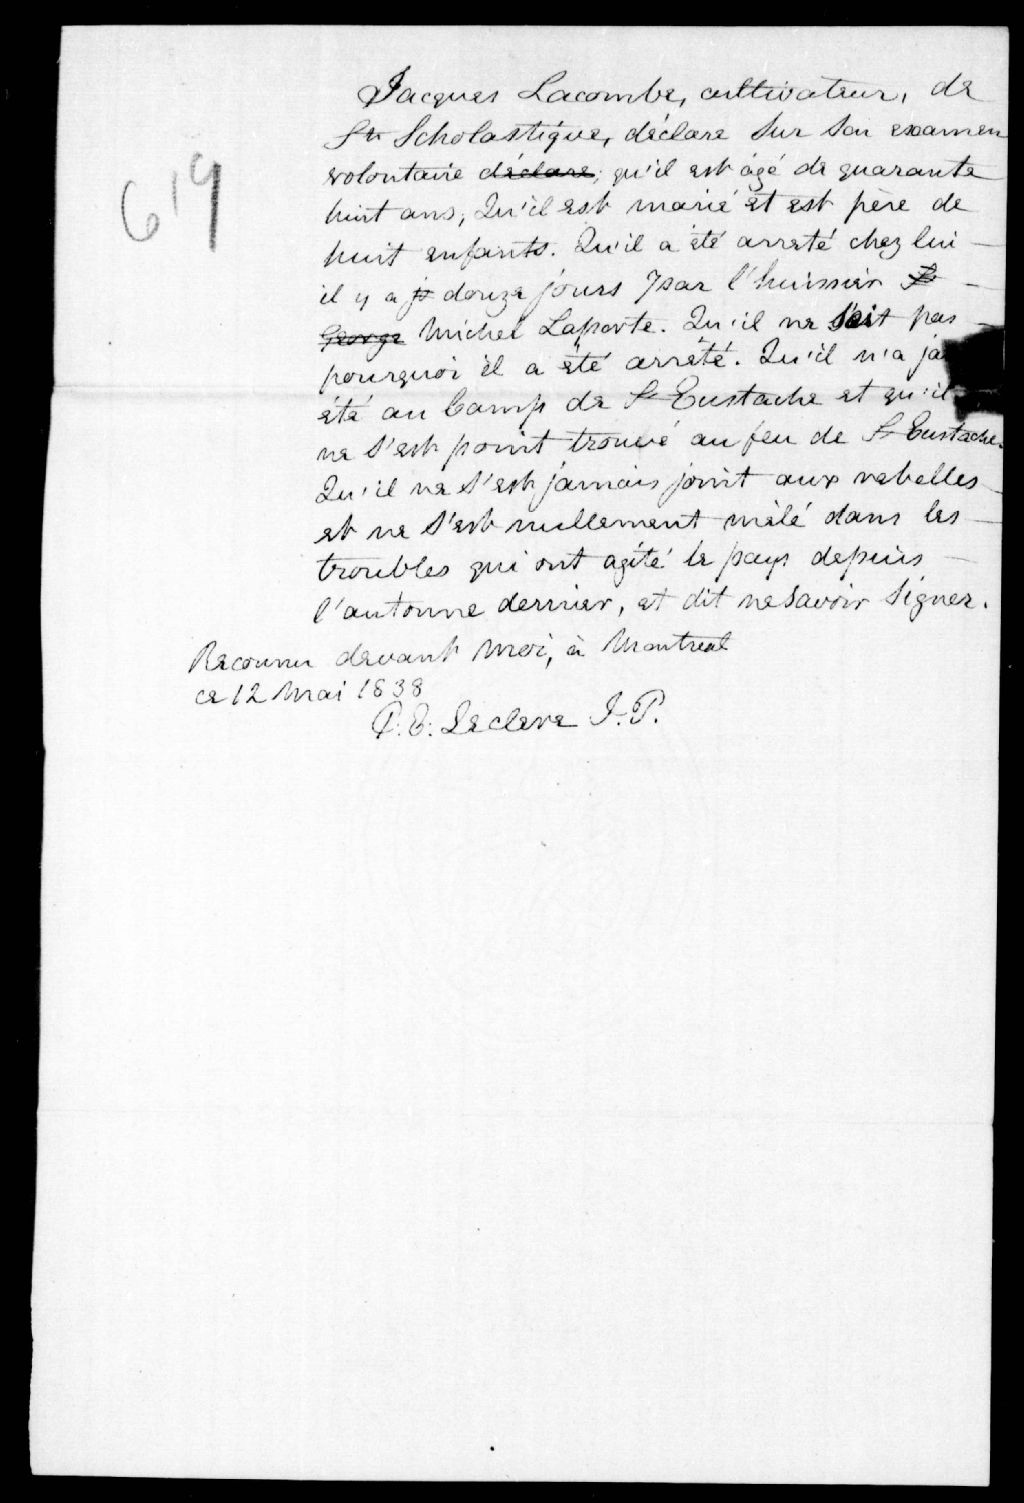 619
Jacques Lacombe, cultivateur, de
Ste Scholastique, déclare sur son examen
volontaire déclare, qu'il est âgé de quarante
huit ans, Qu'il est marié et est père de
huit enfants. Qu'il a été arreté chez lui
il y a douze jours par l'huissier
George Michel Laporte. Qu'il ne sait pas
pourquoi il a été arrêté. Qu'il n'a ja
été au Camp de St Eustache et qu'il
ne s'est point trouvé au feu de St Eustache.
Qu'il ne s'est jamais joint aux rebelles
et ne s'est nullement mêlé dans les
troubles qui ont agité le pays depuis
l'automne dernier, et dit ne savoir signer.
Reconnu devant moi, à Montreal
ce 12 Mai 1838
P. E. Leclere J. P.